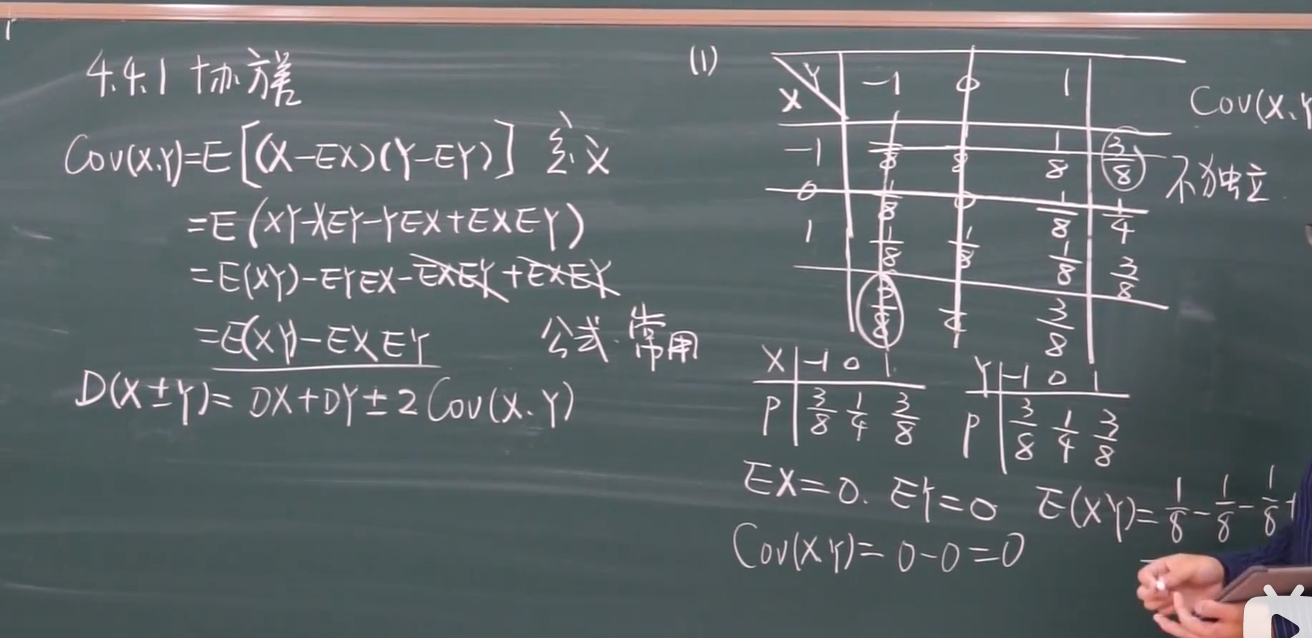 4.4.1 协方差
Cov(X,Y)=E[(X-EX)(Y-EY)] 定义
=E(XY-XEY-YEX+EXEY)
=E(XY)-EYEX-EXEY+EXEY
=E(XY)-EXEY 公式 常用
D(X±Y)=DX+DY±2Cov(X,Y)
(1)
X Y -1 0 1
-1 1/8 1/8 1/8 3/8
0 1/8 0 1/8 1/4
1 1/8 1/8 1/8 3/8
3/8 1/4 3/8
Cov(X,Y
不独立
X -1 0 1
P 3/8 1/4 3/8
Y -1 0 1
P 3/8 1/4 3/8
EX=0. EY=0 E(XY)=1/8-1/8-1/8+
Cov(XY)=0-0=0